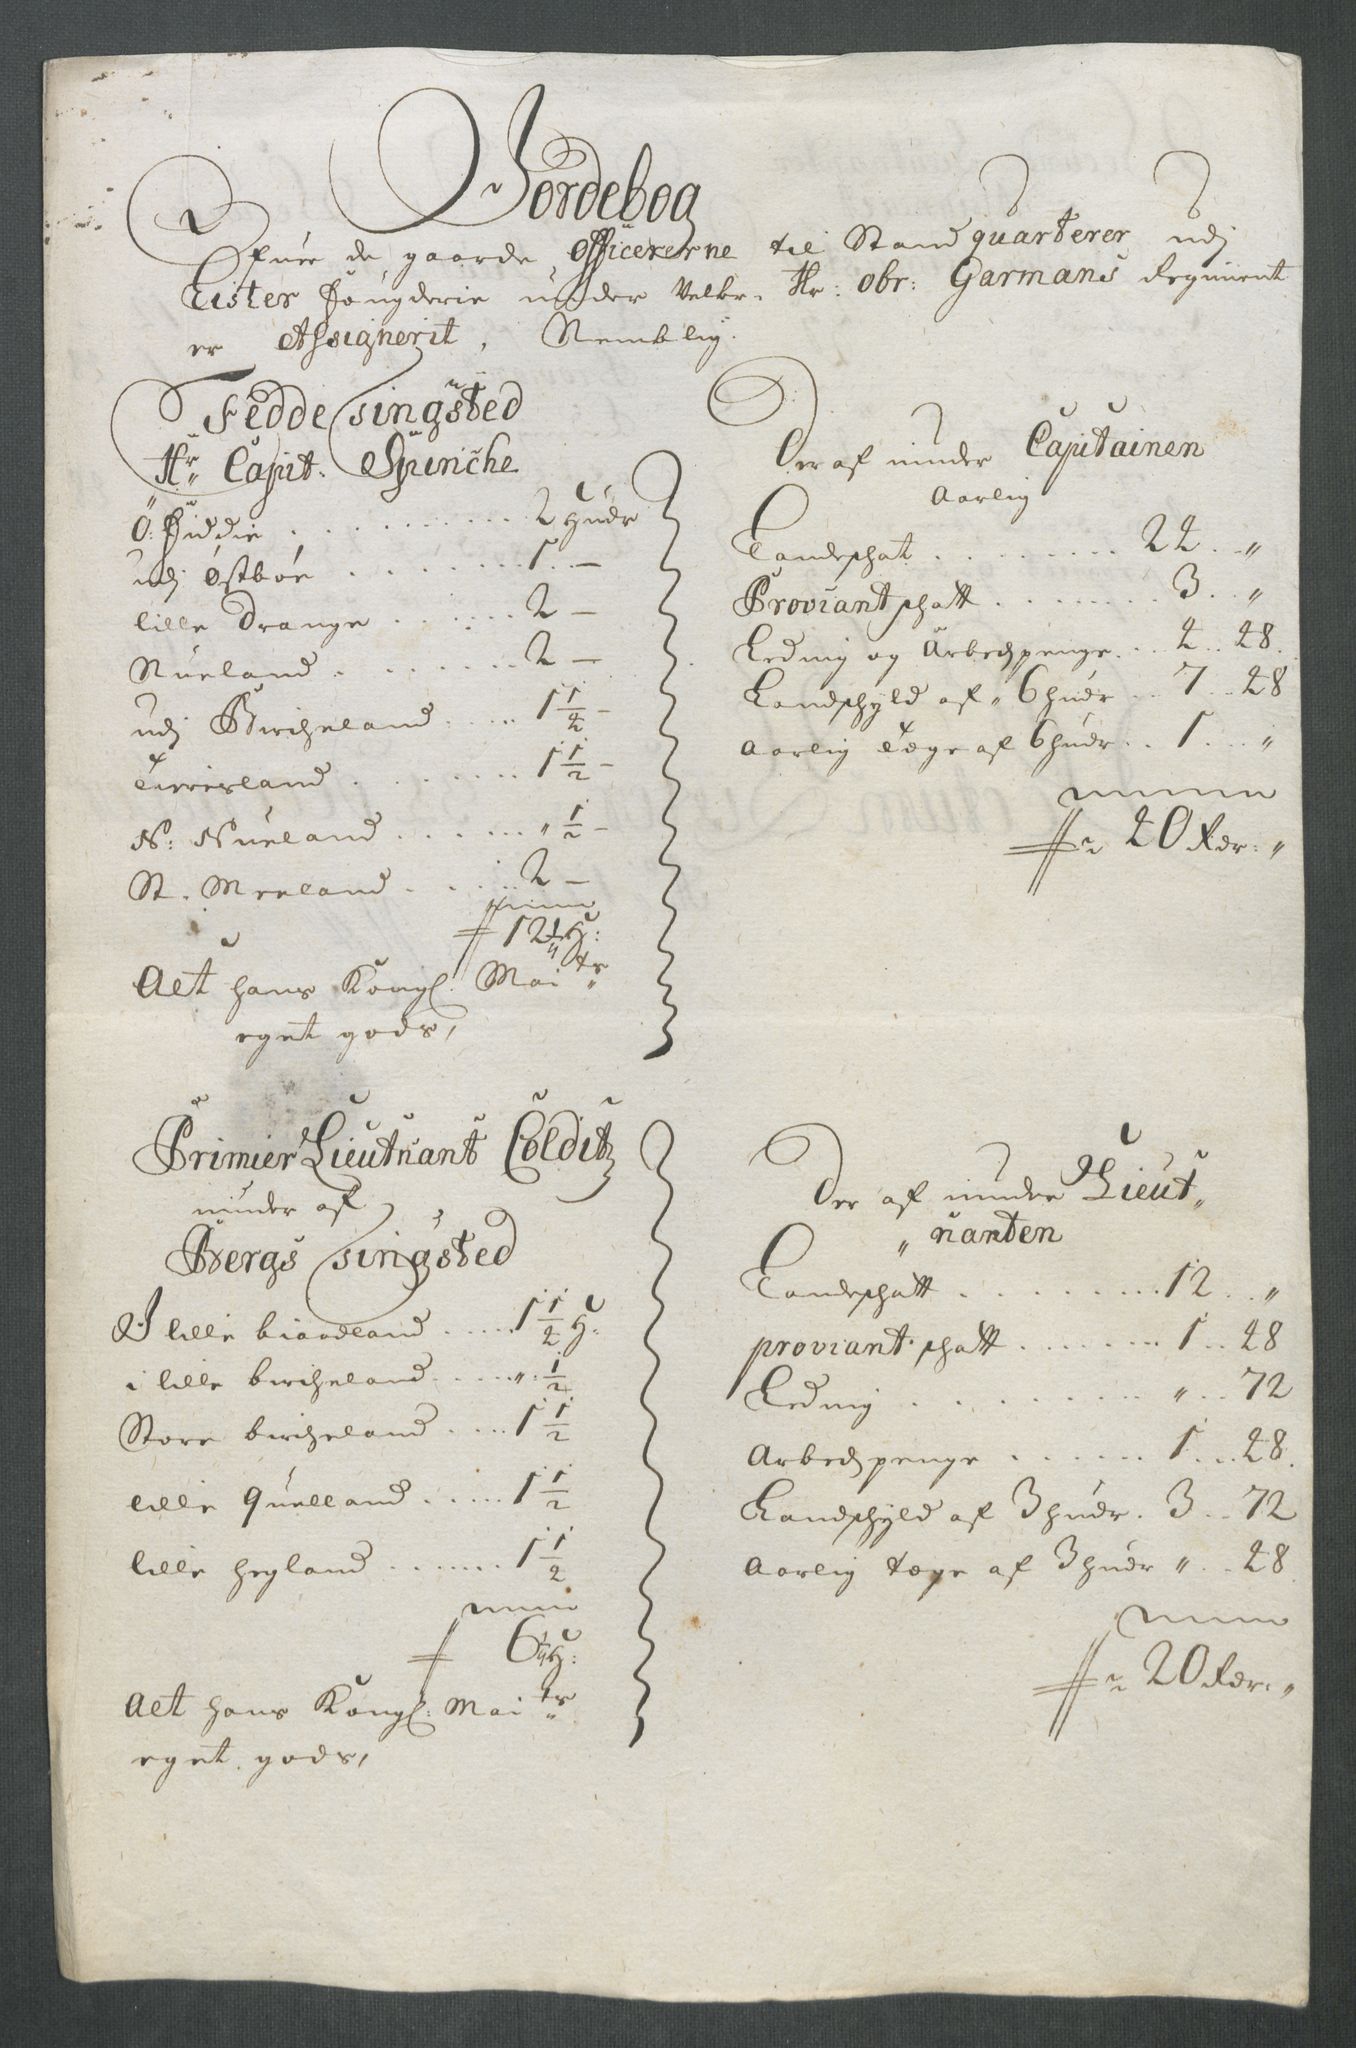 Jordebog
Ofuer de gaarde Officererne til Stand quarterer udj
Lister Fougderie under Velbr. Hr: Obr: Garmans Regiment
er Assignerit, Nemblig.
Fedde Tingsted
Hr Capit: Spinche
Ø: Fiddie . . . 2 hudr
udj Østbøe . . . 1 –
lille Drange . . . 2 –
Nueland . . . 2 –
udj Bircheland . . . 1 1/2 –
. . . 1 1/2 –
N: Nueland . . . " 1/2 –
St. Meeland . . . 2 –
Summa
12 1/2 H:
Alt hans Kongl. Maits
eget gods,
Der af nÿder Capitainen
Aarlig
Landschat . . . 22 . "
Proviant schatt . . . 3 . "
Leding og Arbedspenge . . 2 . 28
Landschyld af 6 hudr . . 7 . 28
Aarlig Tæge af 6 hudr . . 1 . "
Summa
40 Rdr: "
Primier Lieutnant Colditz
nÿder af
Bergs Tingsted
I lille biaadland . . . 1 1/2 H:
i lille bircheland . . . " 1/2
Store bircheland . . . 1 1/2
lille Quelland . . . 1 1/2
lille Hegland . . . 1 1/2
Summa
6 1/2 H:
Alt hans Kongl: Maits
eget gods,
Der af nÿder Lieut"
" nanten
Landschatt . . . 12 . "
proviant schatt . . . 1 . 28
Leding . . . " . 72
Arbedspenge . . . 1 . 28
Landschyld af 3 hudr . 3 . 72
Aarlig tæge af 3 hudr " . 28
Summa
20 Rdr: "